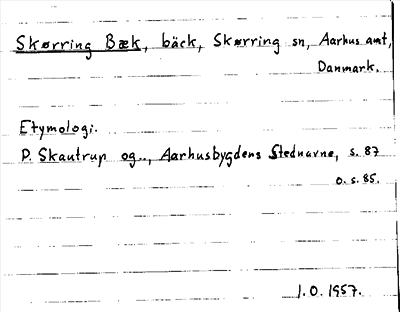 Skørring Bæk, bäck, Skørring sn, Aarhus amt,
Danmark.
Etymologi.
P. Skautrup og.., Aarhusbygdens Stednavne, s. 87
o. s. 85.
1.0. 1957.